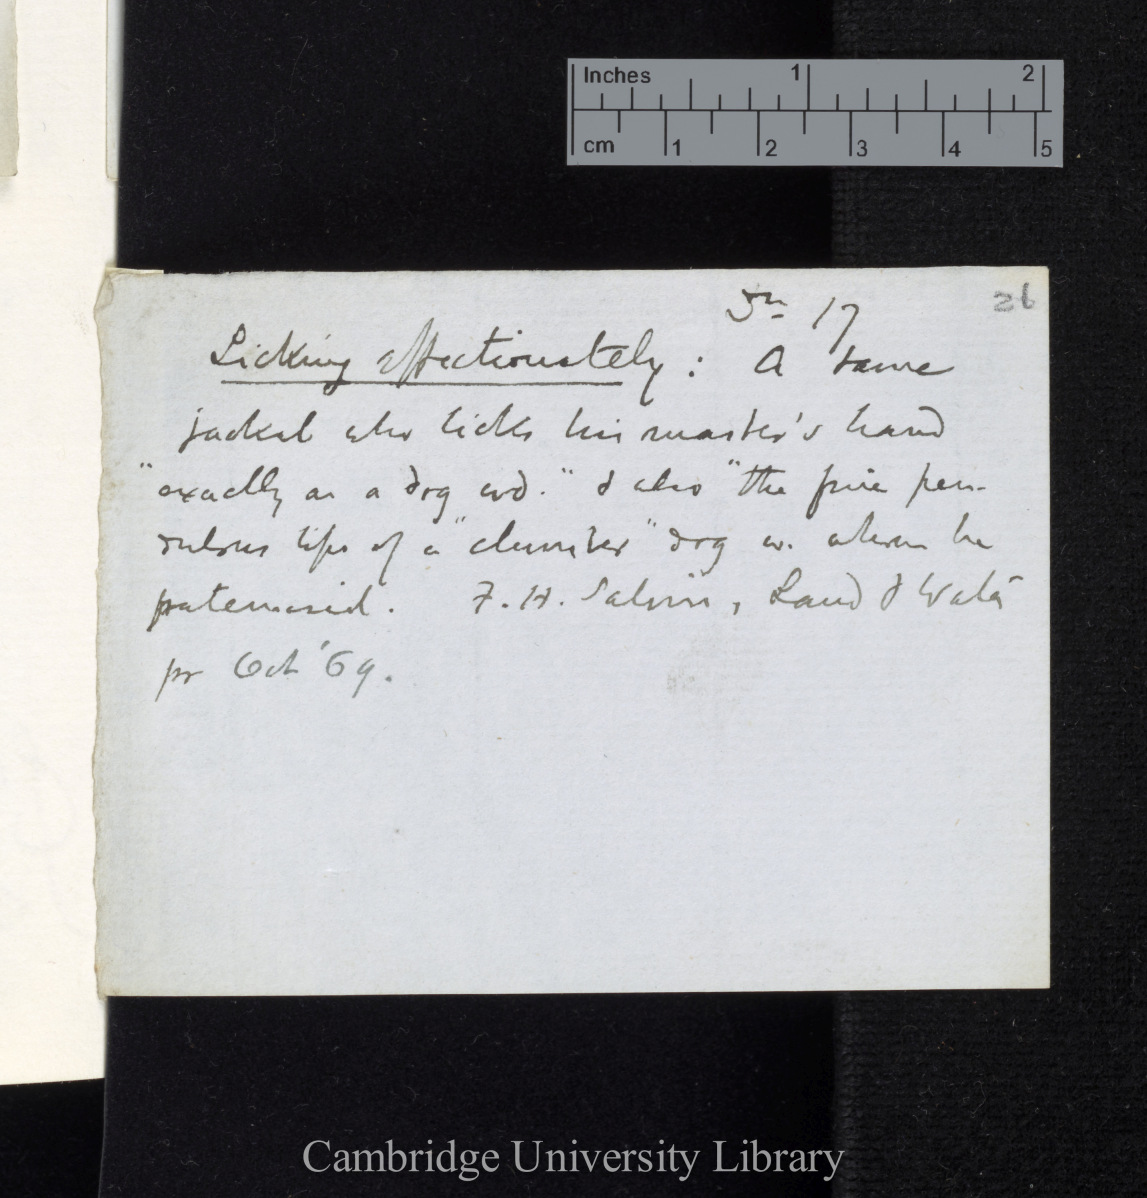 Inches 1 2
cm 1 2 3 4 5
26
17
Licking affectionately: A tame
jackal who licks his master's hand
"exactly as a dog wd." & also "the fine pen-
dulous lips of a "clumber" dog w. whom he
fraternised. F. H. Salvin, Land & Water
Oct '69.
Cambridge University Library